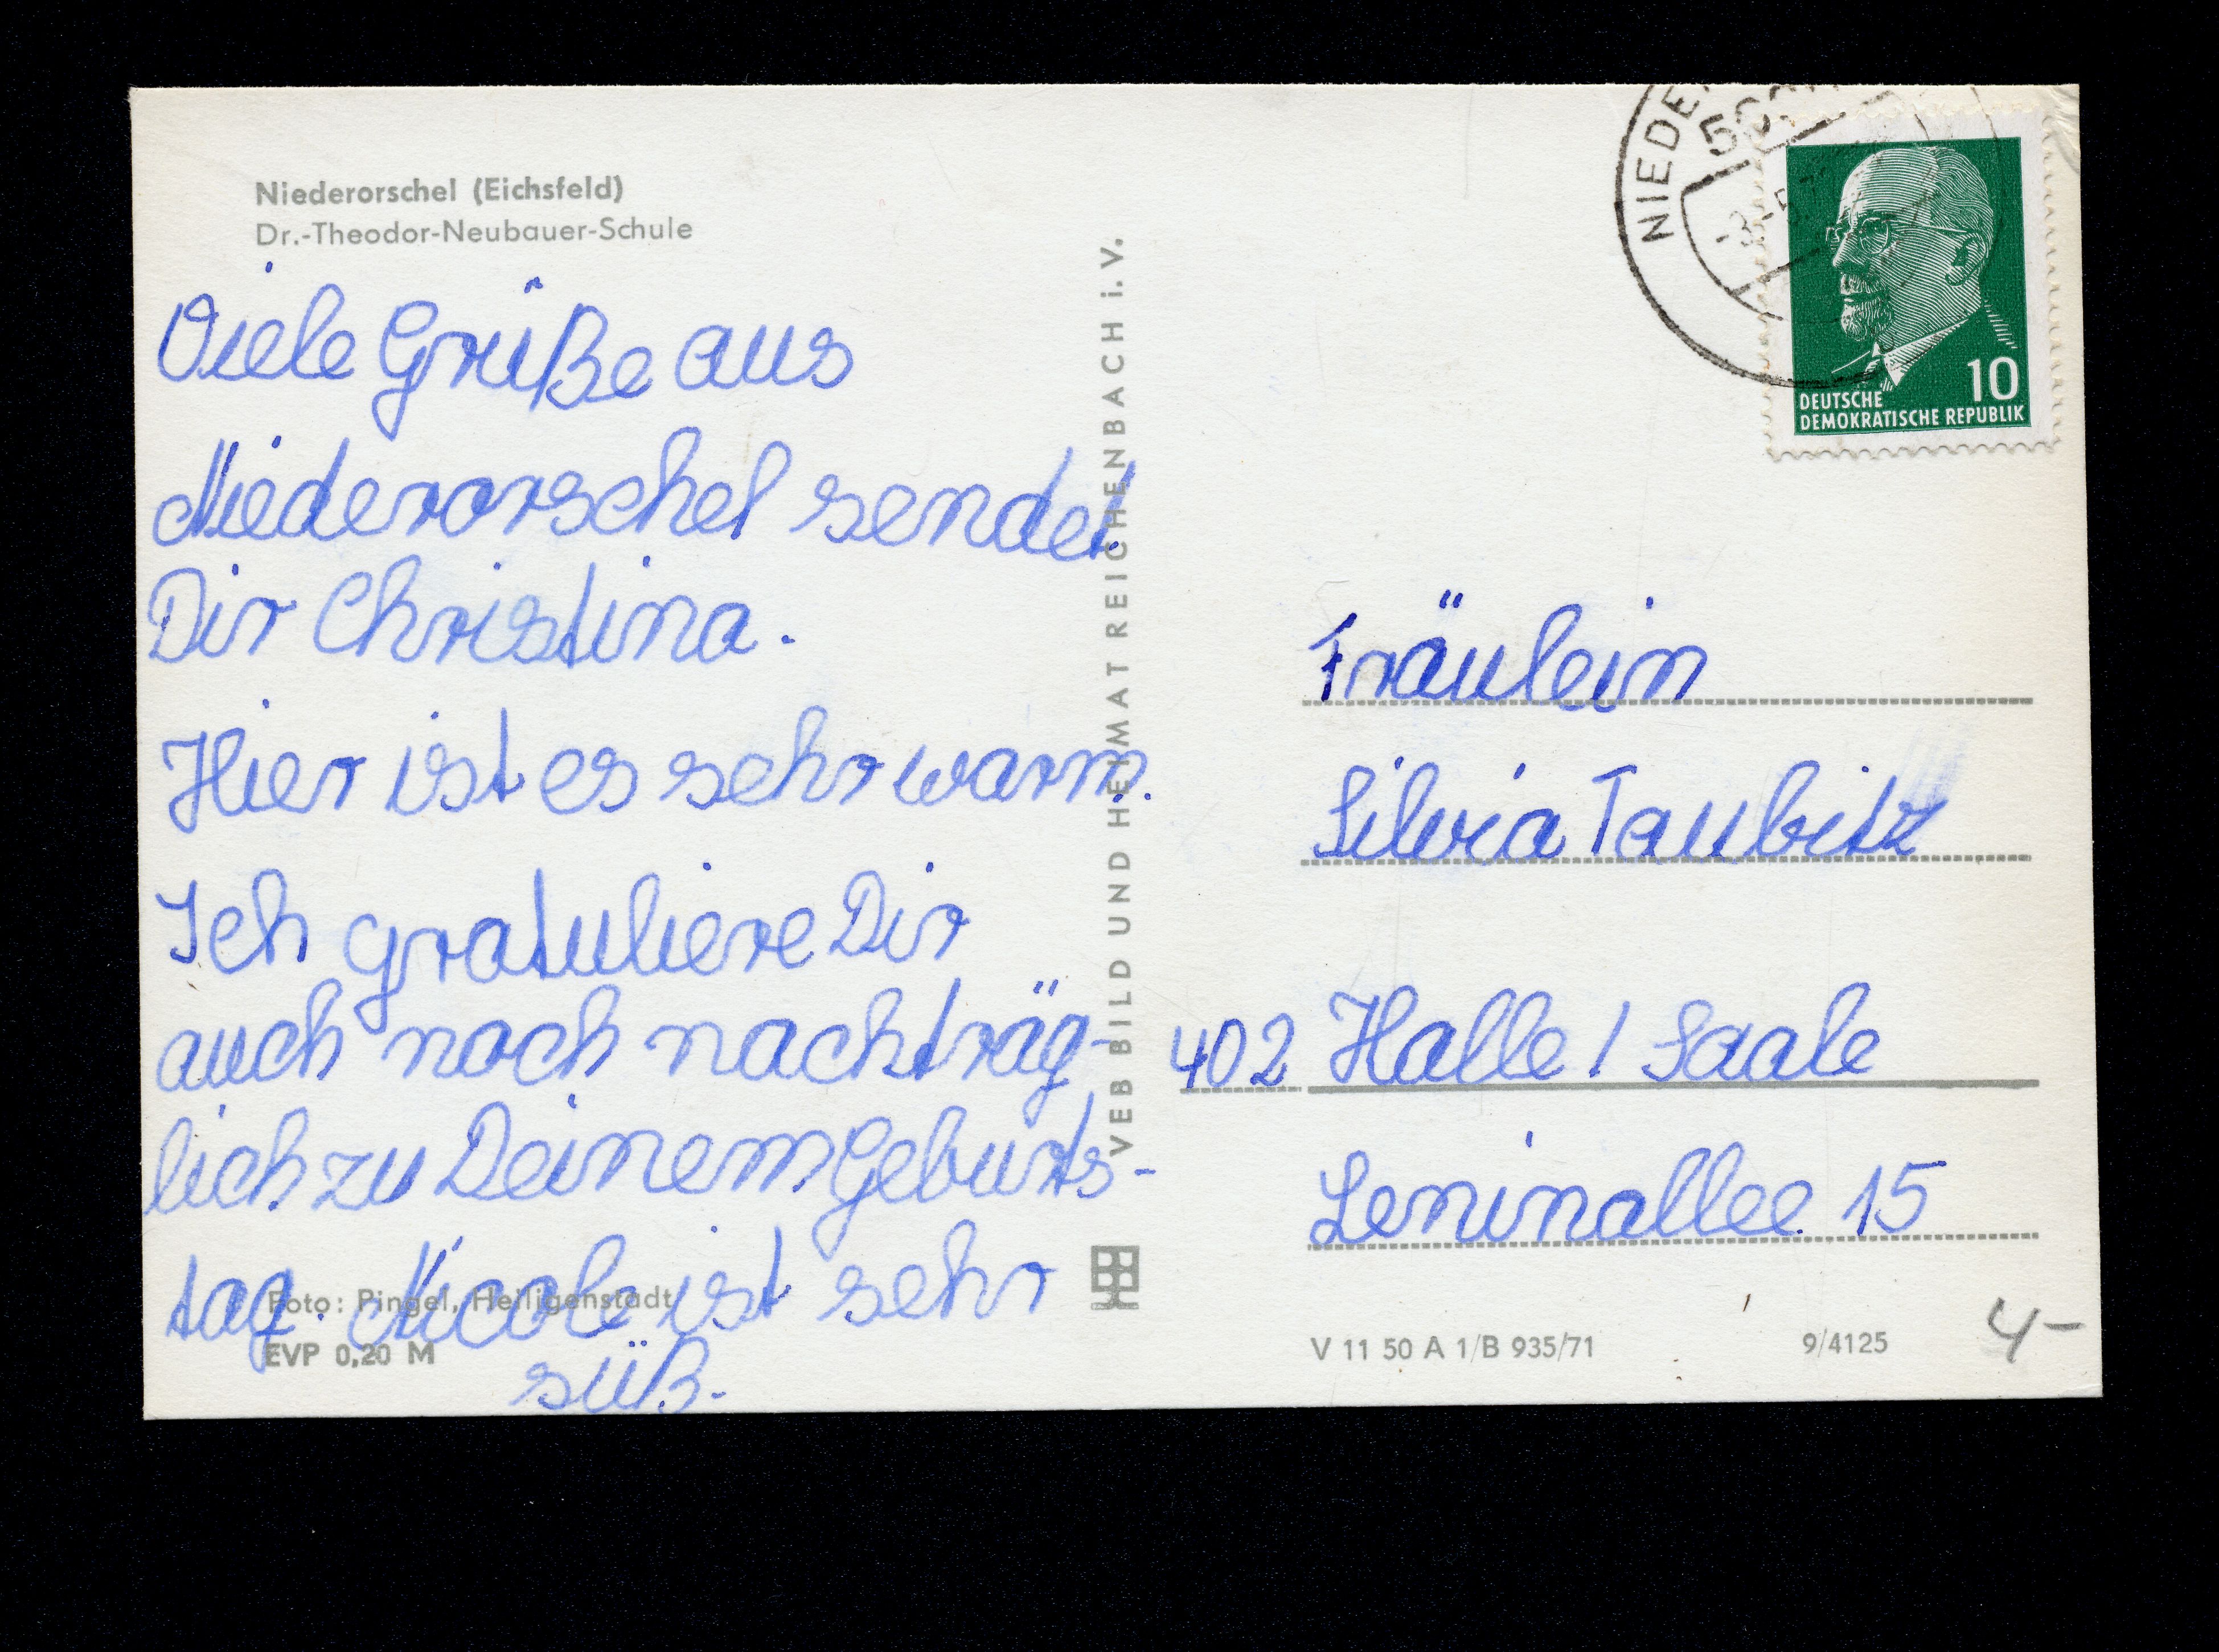 Niederorschel (Eichsfeld)
Dr.-Theodor-Neubauer-Schule
Viele Grüße aus
Niederorschel sendet
Dir Christina.
Hier ist es sehr warm.
Ich gratuliere Dir
auch noch nachträg-
lich zu Deinem Geburts-
tag. Nicole ist sehr
süß.
Foto: Pingel, Heiligenstadt
EVP 0,20 M
VEB BILD UND HEIMAT REICHENBACH i. V.
10
DEUTSCHE
DEMOKRATISCHE REPUBLIK
Fräulein
Silvia Taubitz
402 Halle / Saale
Leninallee 15
V 11 50 A 1/B 935/71
9/4125
4-